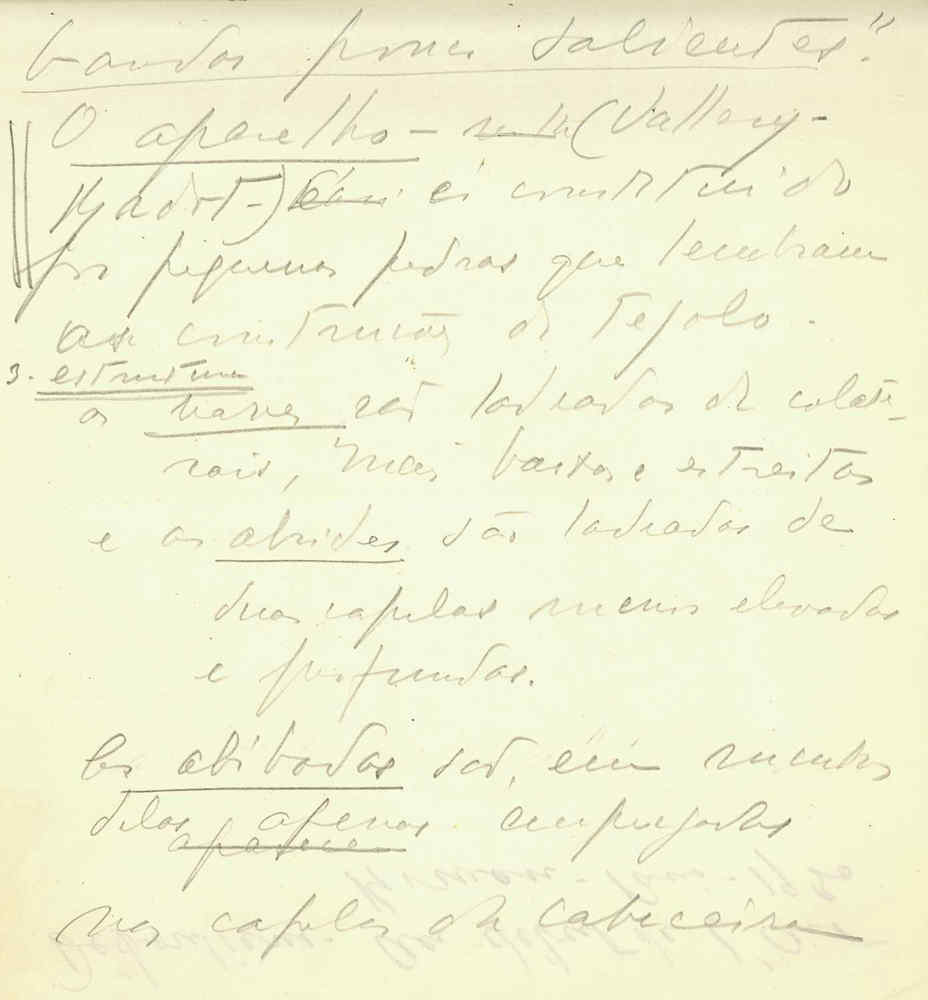 bandas pouco salientes."
O aparelho – (Vallery-
Radot-) é constituido
por pequenas pedras que lembram
as construções de tejolo.
3. estrutura
as naves são ladeadas de colate-
rais, mais baixos e estreitos
e as absides são ladeadas de
duas capelas menos elevadas
e profundas.
As abóbodas são, em muitas
delas apenas empregadas
nas capelas da cabeceira